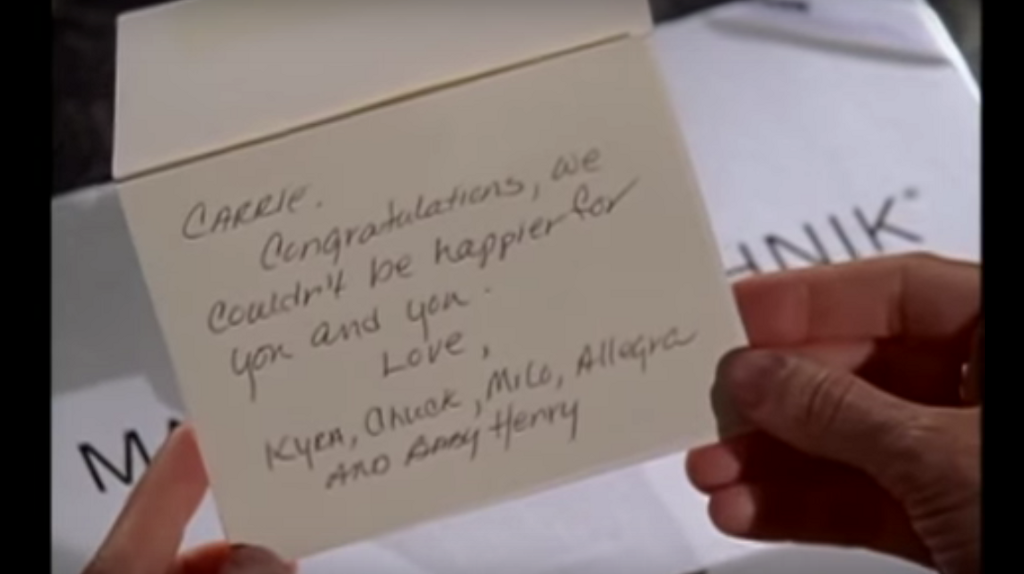 CARRIE.
Congratulations, we
couldn't be happier for
you and you.
Love,
Kyra, Chuck, Milo, Allegra
AND BABY Henry
HNIK